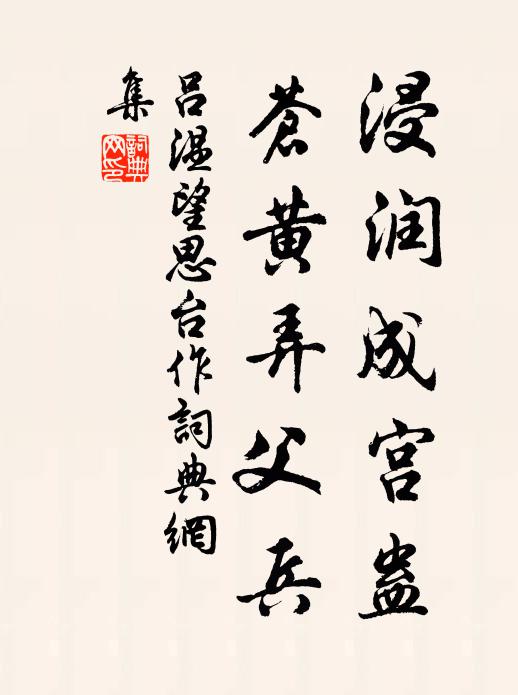 浸润成宫蛊
苍黄弄父兵
吕温望思台作詞典網
集
詞典
网印